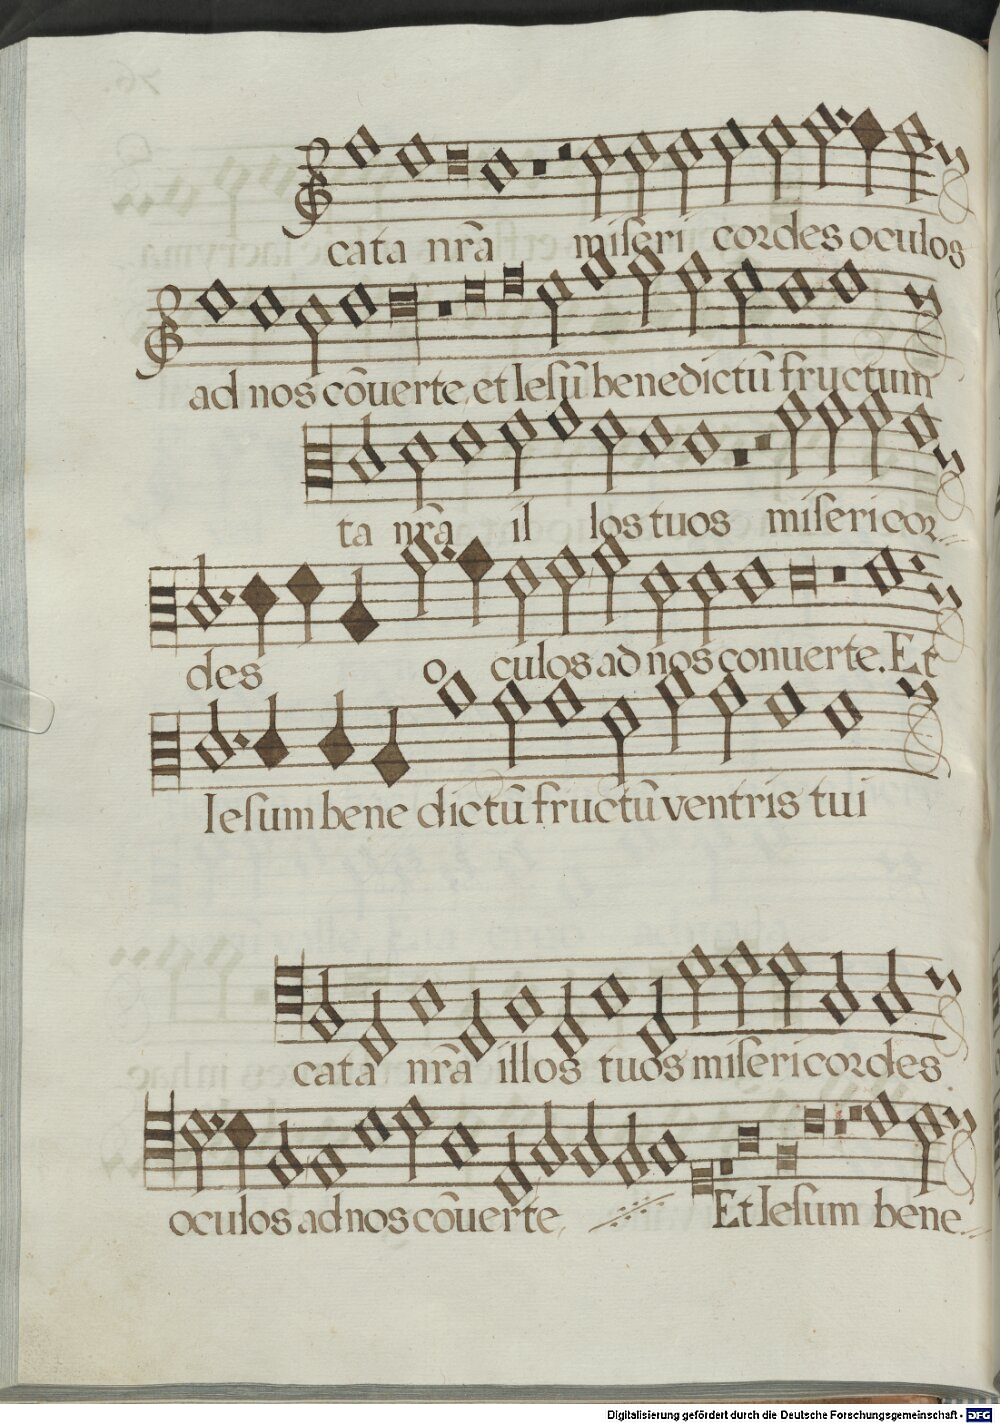 cata nr̃a miſeri cordes oculos
ad nos cõuerte, et Ieſũ benedictũ fructum
ta nr̃a il los tuos miſericor
des o culos ad nos conuerte. Et
Ieſum bene dictũ fructũ ventris tui
cata nr̃a illos tuos miſericordes
oculos ad nos cõuerte, Et Ieſum bene
Digitalisierung gefördert durch die Deutsche Forschungsgemeinschaft - DFG